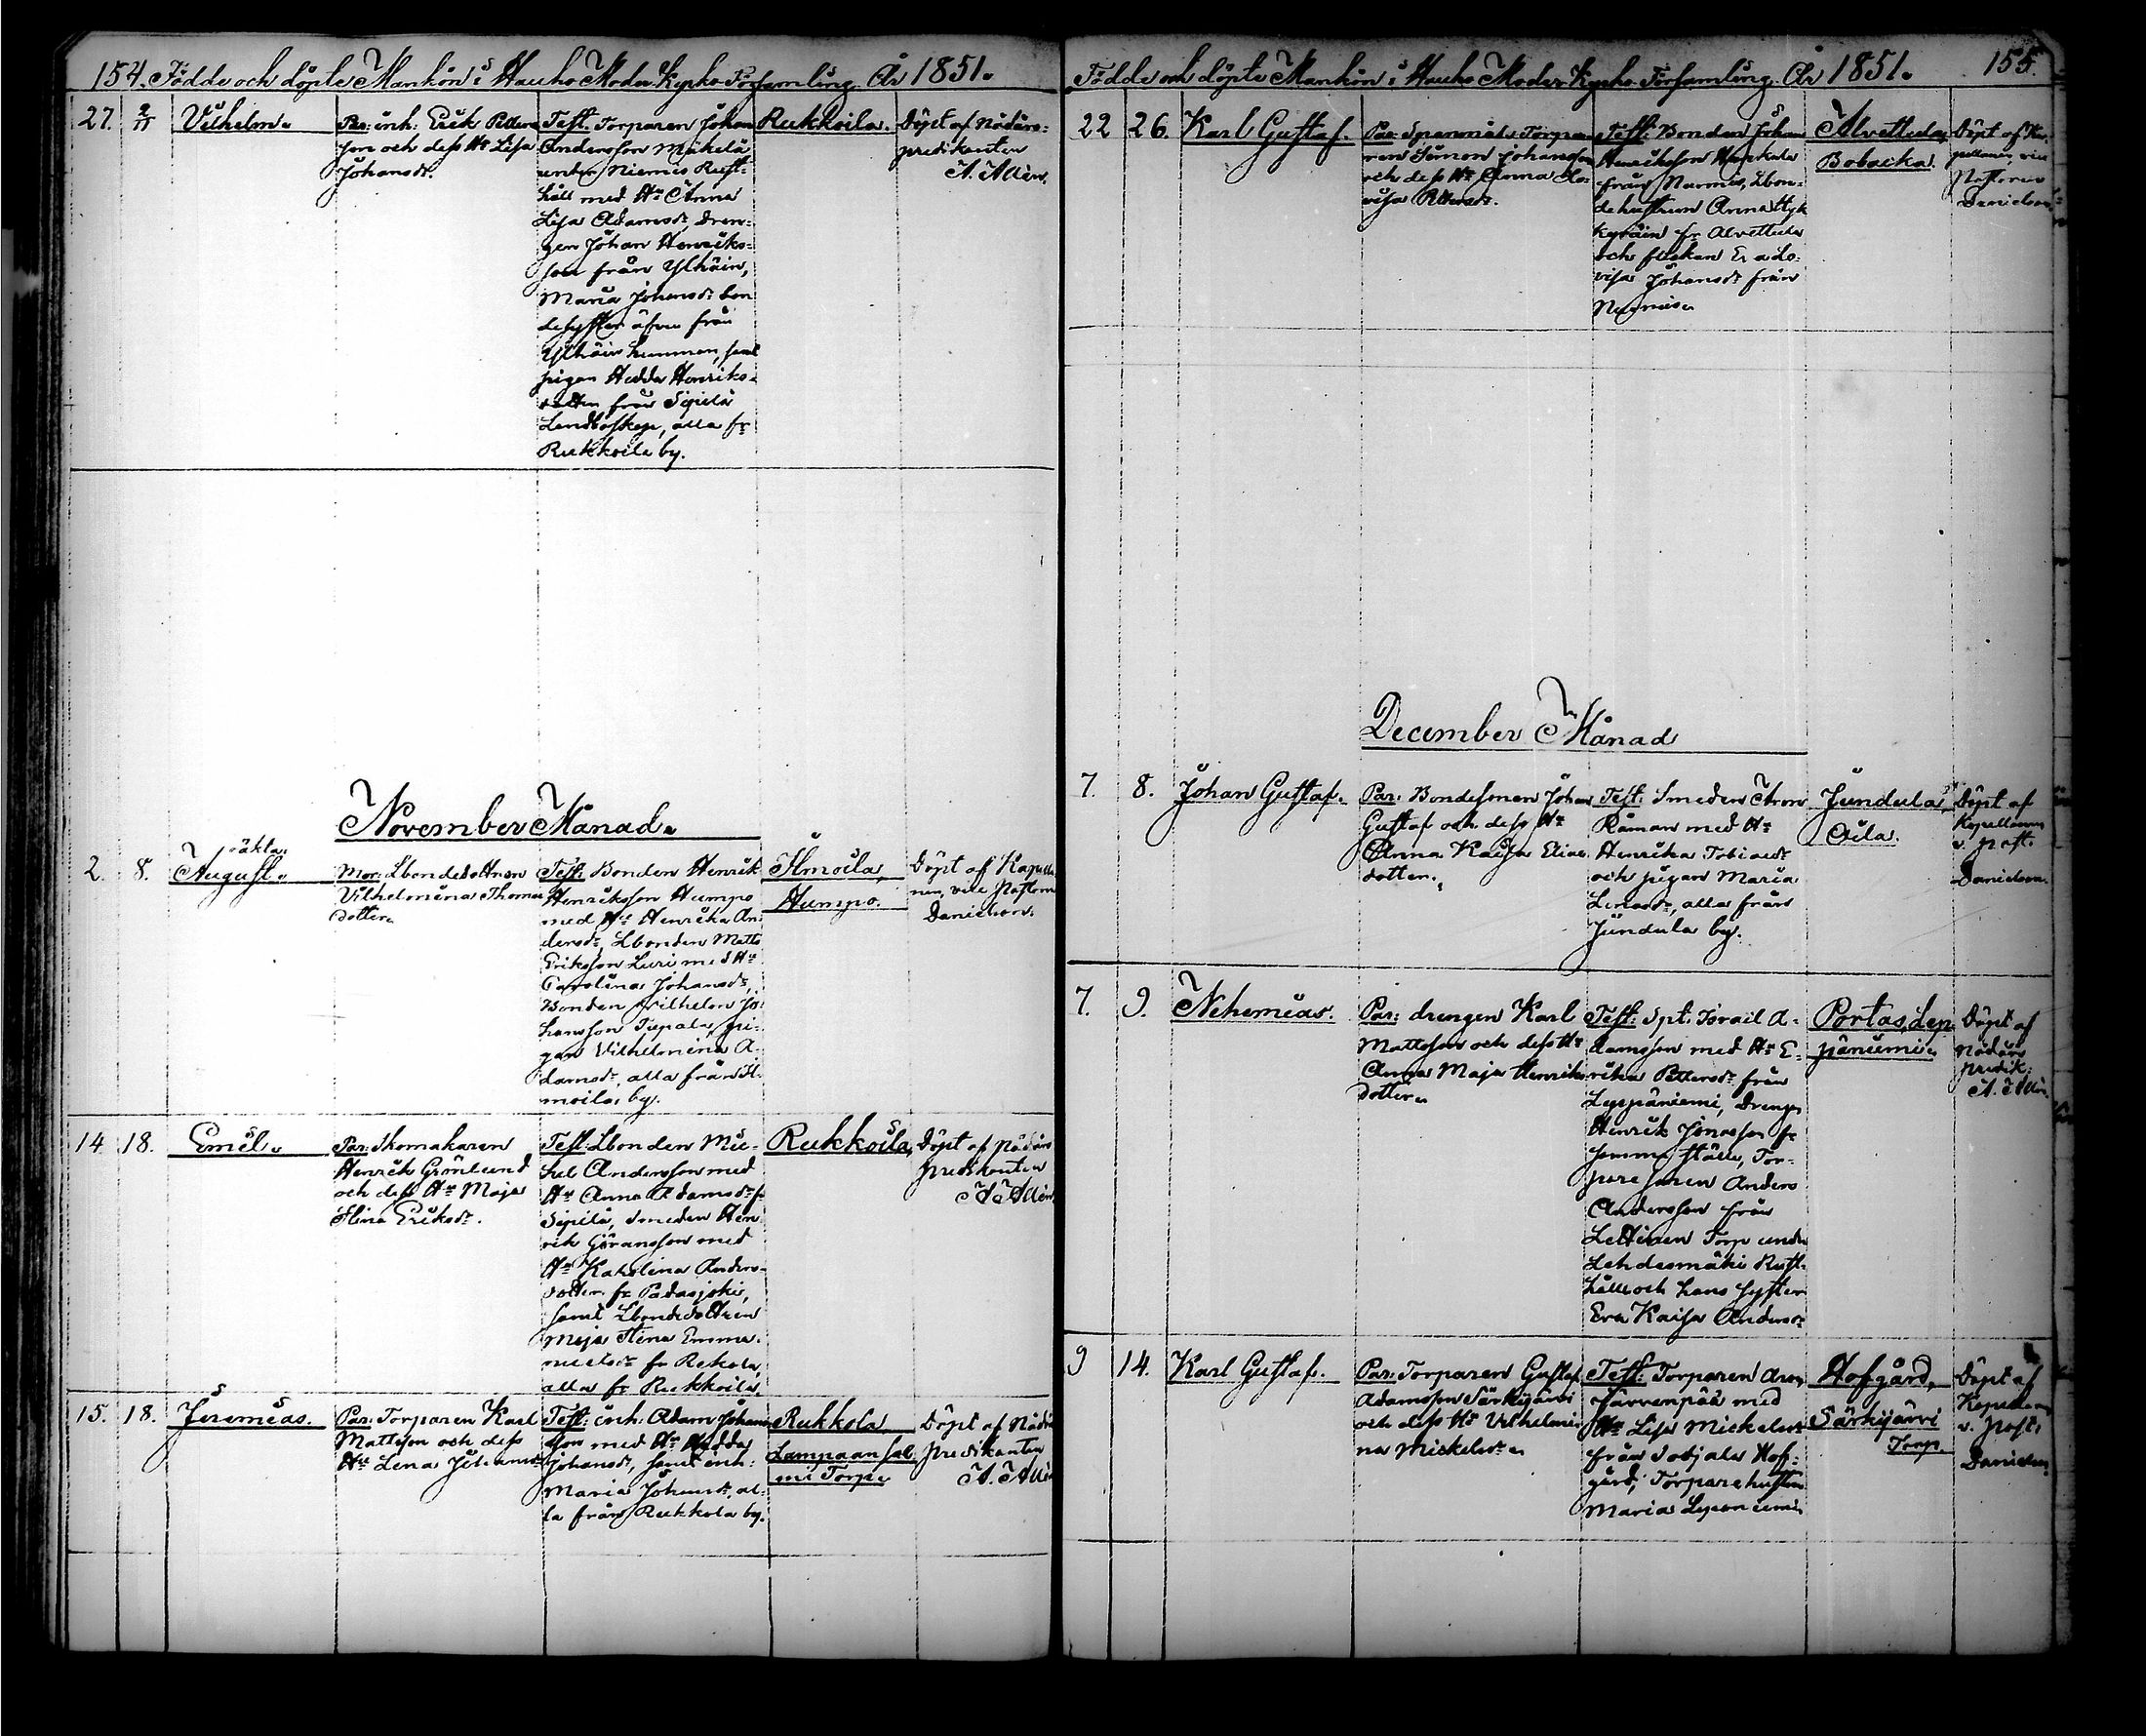 154. Födde och döpte Mankön i Hauho Moder Kyrko Församling År 1851.
27. 2/11 Vilhelm.
Par: inh: Erik Petters-
son och dess Hu Lisa
Johansdr.
Test. Torparen Johan
Andersson Mäkelä
under Niemis Rust-
håll med Hu Anna
Lisa Adamsdr, dren-
gen Johan Henriks-
son från Ylhäin,
Maria Johansdr bon
desyster äfven från
Ylhäis hemman, samt
pigan Hedda Henriks-
dotter från Sipilä
Landboskap, alla fr
Rukkoila by.
Rukkoila.
Döpt af Nådårs-
predikanten
A. Allén.
November Månad.
2. 8. oäkta.
August.
Mor: Lbondedottren
Vilhelmina Thomas
dotter
Test: Bonden Henrik
Henriksson Humpo
med Hu Henrika An-
dersdr, Lbonden Matts
Eriksson Luri med Hu
Carolina Johansdr,
Bonden Vilhelm Jo-
hansson Tupala, pi-
gan Vilhelmina A-
damsdr, alla från Il-
moila by.
Ilmoila,
Humpo.
Döpt af Kapella-
nen, vice Pastorn
Danielson.
14 18. Emil.
Par: Skomakaren
Henrik Grönlund
och dess Hu Maja
Stina Eriksdr.
Test: Lbonden Mic-
kel Andersson med
Hu Anna Adamsdr fr
Sipilä, Smeden Hen-
rik Göransson med
Hu Katalina Anders-
dotter fr Padasjoki,
samt Lbondedottren
Maja Stina Emma-
nuelsdr fr Rekola,
alla fr Rukkoila.
Rukkoila,
Döpt af Nådårs
predikanten
A. Allén
15. 18. Jeremias.
Par: Torparen Karl
Mattsson och dess
Hu Lena Johansdr
Test: inh: Adam Johans
son med Hu Hedda
Johansdr, samt inh:
Maria Johansdr, al-
la från Rukkola by.
Rukkola
Lampaan sal-
mi Torp.
Döpt af Nådårs
predikanten
A. Allén
Födde och döpte Mankön i Hauho Moder Kyrko Församling. År 1851. 155.
22 26. Karl Gustaf.
Par: Spanmåls Torpa-
ren Simon Johansson
och dess Hu Anna Lo-
visa Pettersdr.
Test: Bonden Johan
Henriksson
från Lbon-
dehustrun Anna
fr Alvettula
och flickan Eva Lo-
visa Johansdr från
Alvettula,
Bobacka.
Döpt af Ka-
pellanen, vice
Pastorn
Danielson.
December Månad
7. 8. Johan Gustaf.
Par: Bondesonen Johan
Gustaf och dess Hu
Anna Kaisa Elias
dotter.
Test: Smeden Aron
Råman med Hu
Henrika Tobiasdr
och pigan Maria
Linasdr, alla från
Jundula by.
Jundula,
Oila.
Döpt af
Kapellanen
v. Past.
Danielson.
7. 9. Nehemias.
Par: drengen Karl
Mattsson och dess Hu
Anna Maja Henriks
dotter.
Test: Spt. Israil A-
damsson med Hu E-
rika Pettersdr från
Leppäniemi, Drengen
Henrik Jönasson fr
samma ställe, Tor-
paresonen Anders
Andersson från
Lettinen Torp under
Lehdesmäki Rust-
håll och hans syster
Eva Kaisa Andersdr
Portas, Lep-
päniemi.
Döpt af
Nådårs
predik:
A. Allén.
9 14. Karl Gustaf.
Par: Torparen Gustaf
Adamsson Särkijärvi
och dess Hu Vilhelmi-
na Mickelsdr.
Test: Torparen Aron
Järvenpää med
Hu Lisa Mickelsdr
från Sotjala Hof-
gård, Torparehustru
Maria
Hofgård,
Särkijärvi
Torp.
Döpt af
Kapellanen
v. Past.
Danielson